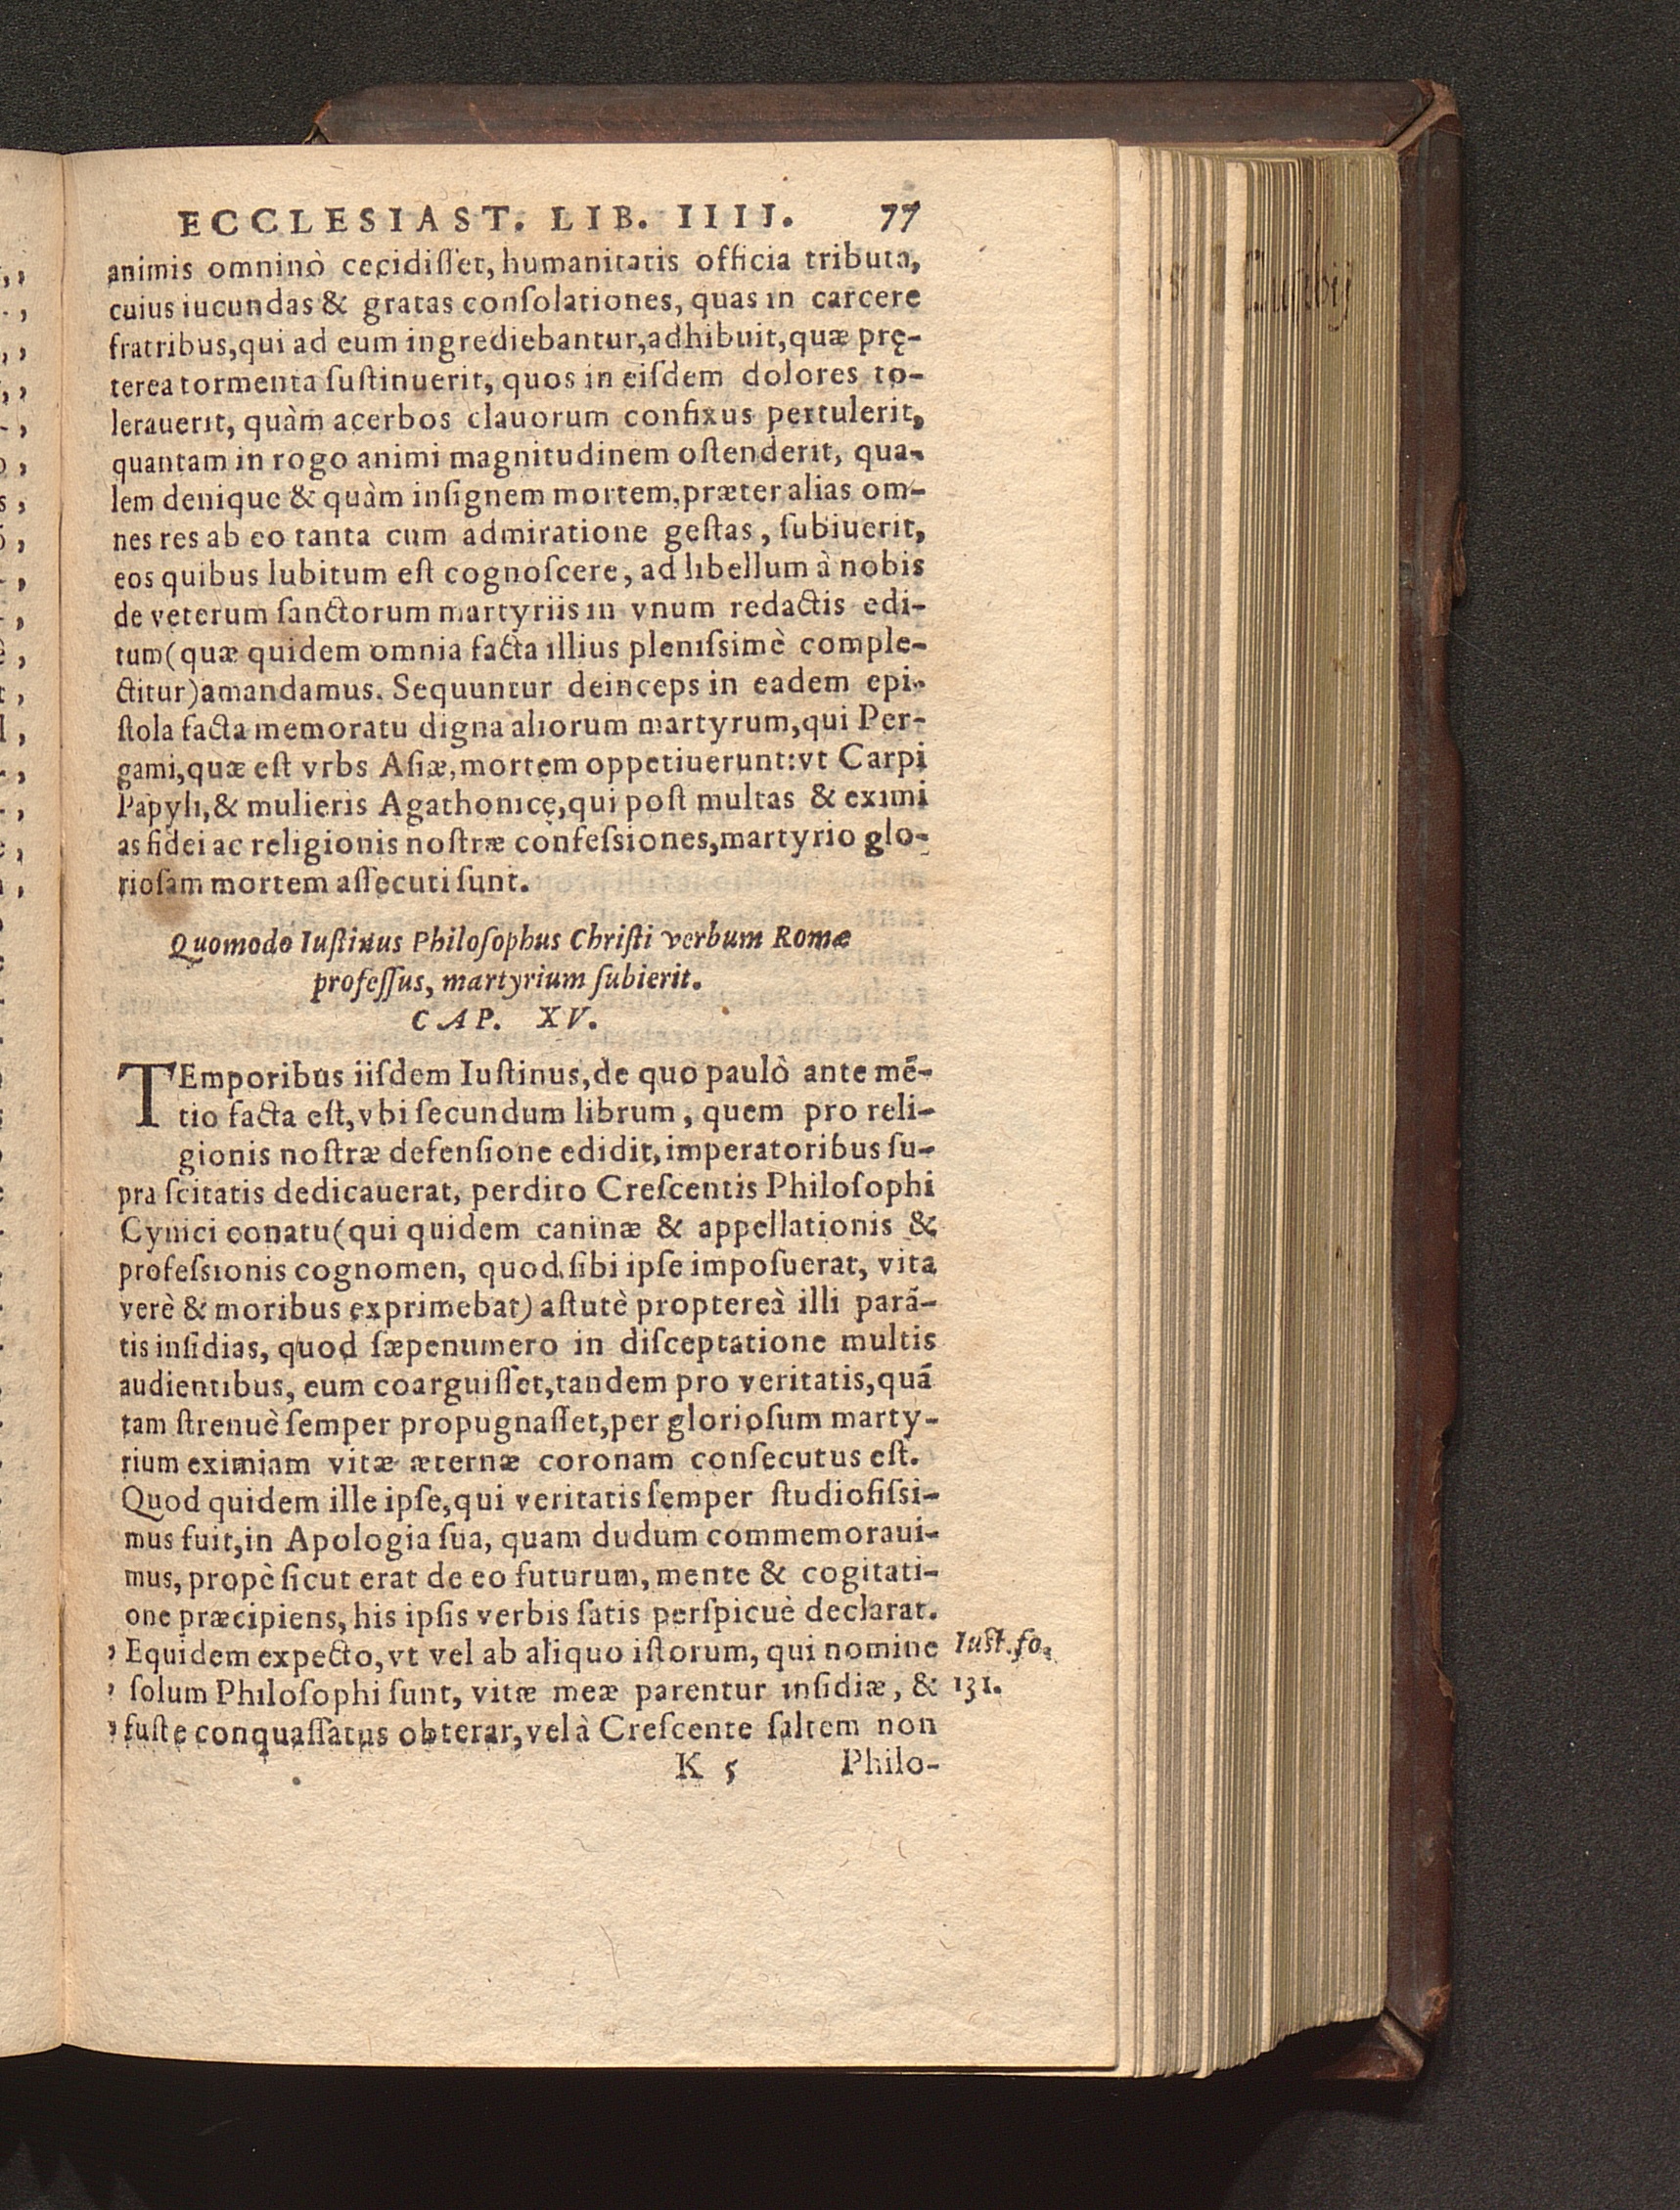 ECCLESIAST. LIB. IIII. 77
animis omninò cecidiſſet, humanitatis officia tributa,
cuius iucundas & gratas conſolationes, quas in carcere
fratribus, qui ad eum ingrediebantur, adhibuit, quæ prę-
terea tormenta ſuſtinuerit, quos in eiſdem dolores to-
lerauerit, quàm acerbos clauorum confixus pertulerit,
quantam in rogo animi magnitudinem oſtenderit, qua-
lem denique & quàm inſignem mortem, præter alias om-
nes res ab eo tanta cum admiratione geſtas, ſubiuerit,
eos quibus lubitum eſt cognoſcere, ad libellum à nobis
de veterum ſanctorum martyriis in vnum redactis edi-
tum (quæ quidem omnia facta illius pleniſsimè comple-
ctitur) amandamus. Sequuntur deinceps in eadem epi-
ſtola facta memoratu digna aliorum martyrum, qui Per-
gami, quæ eſt vrbs Aſiæ, mortem oppetiuerunt: vt Carpi
Papyli, & mulieris Agathonicę, qui poſt multas & eximi
as fidei ac religionis noſtræ confeſsiones, martyrio glo-
rioſam mortem aſſecuti ſunt.
Quomodo Iuſtinus Philoſophus Chriſti verbum Romæ
profeſſus, martyrium ſubierit.
CAP. XV.
TEmporibus iiſdem Iuſtinus, de quo paulò ante mē-
tio facta eſt, vbi ſecundum librum, quem pro reli-
gionis noſtræ defenſione edidit, imperatoribus ſu-
pra ſcitatis dedicauerat, perdito Creſcentis Philoſophi
Cynici conatu (qui quidem caninæ & appellationis &
profeſsionis cognomen, quod ſibi ipſe impoſuerat, vita
verè & moribus exprimebat) aſtutè proptereà illi parā-
tis inſidias, quod ſæpenumero in diſceptatione multis
audientibus, eum coarguiſſet, tandem pro veritatis, quā
tam ſtrenuè ſemper propugnaſſet, per glorioſum marty-
rium eximiam vitæ æternæ coronam conſecutus eſt.
Quod quidem ille ipſe, qui veritatis ſemper ſtudioſiſsi-
mus fuit, in Apologia ſua, quam dudum commemoraui-
mus, propè ſicut erat de eo futurum, mente & cogitati-
one præcipiens, his ipſis verbis ſatis perſpicuè declarat.
, Equidem expecto, vt vel ab aliquo iſtorum, qui nomine Iuſt. fo.
, ſolum Philoſophi ſunt, vitæ meæ parentur inſidiæ, & 131.
, fuſte conquaſſatus obterar, vel à Creſcente ſaltem non
K 5 Philo-